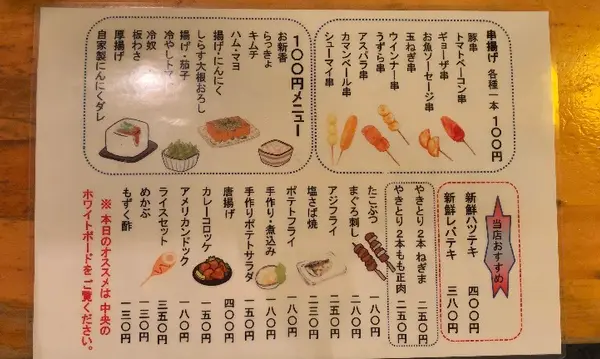 串揚げ 各種一本 100円
豚串
トマトベーコン串
ギョーザ串
お魚ソーセージ串
玉ねぎ串
ウインナー串
うずら串
アスパラ串
カマンベール串
シューマイ串
100円メニュー
お新香
らっきょ
キムチ
ハム・マヨ
揚げ・にんにく
しらす大根おろし
揚げ・茄子
冷やしトマ
冷奴
板わさ
厚揚げ
自家製にんにくダレ
当店おすすめ
新鮮ハツテキ 四〇〇
新鮮レバテキ 三八〇
やきとり2本 ねぎま 二五〇
やきとり2本 もも正肉 二五〇
たこぶつ 一八〇
まぐろ刺し 二八〇
アジフライ 一五〇
塩さば焼 二三〇
ポテトフライ 一八〇
手作り・煮込み 一八〇
手作りポテトサラダ 一五〇
唐揚げ 四〇〇
カレーコロッケ 一五〇
アメリカンドック 一八〇
ライスセット 三五〇
めかぶ 一三〇
もずく酢 一三〇
※ 本日のオススメは 中央の
ホワイトボードを ご覧ください。